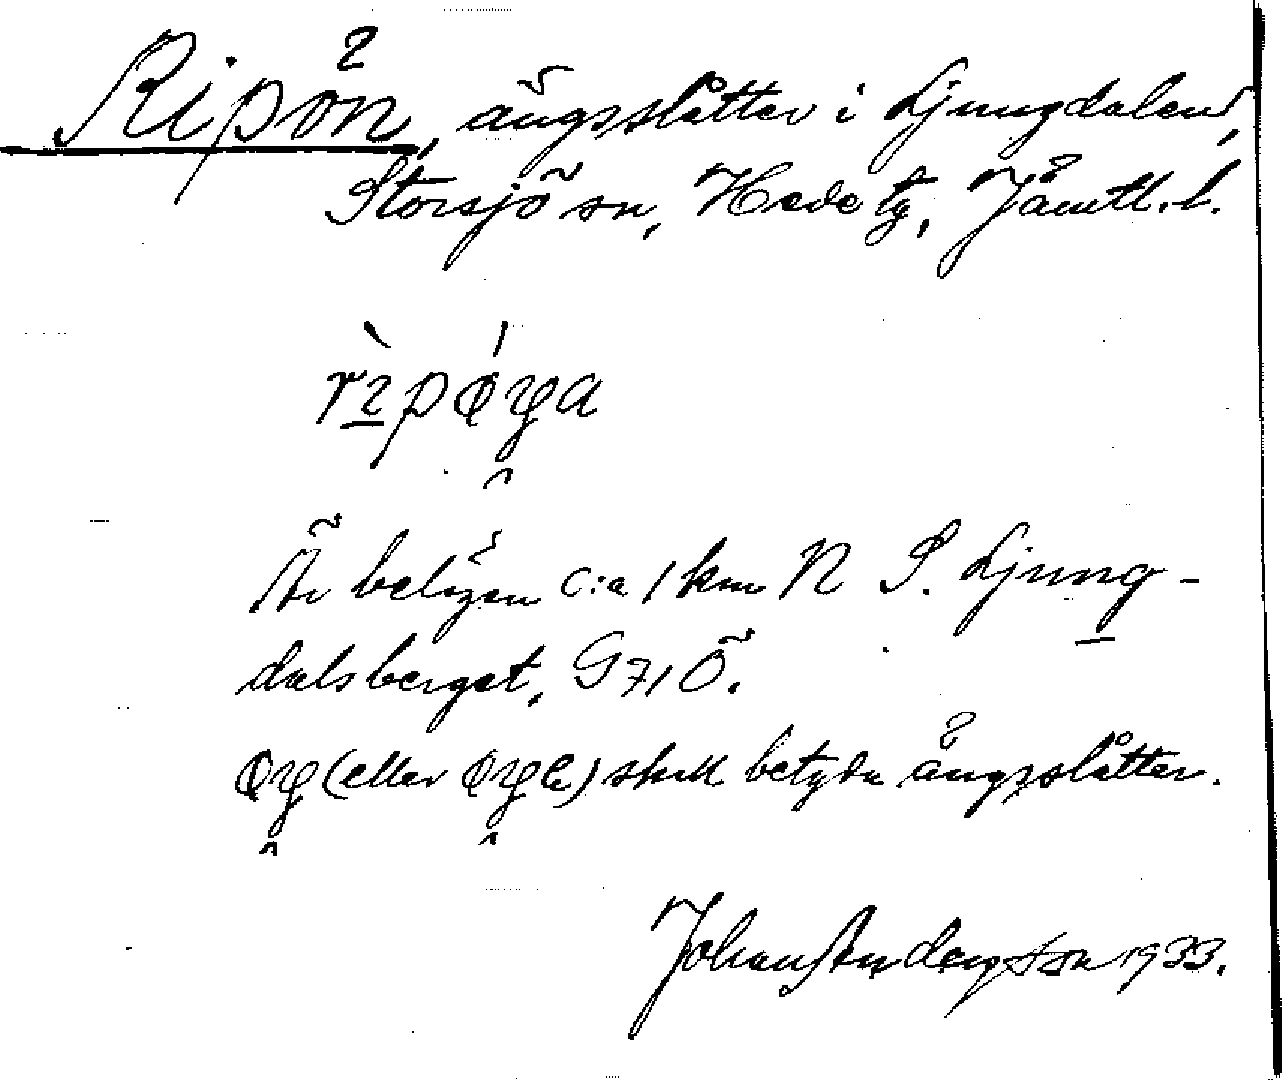 Ripön, ängsslåtter i Ljungdalen,
Storsjö sn, Hede tg, Jämtl. l.
Är belägen c:a 1 km N S. Ljung-
dalsberget, G 71 Ö.
(eller) skall betyda ängsslåtter.
Johan Andersson 1933.